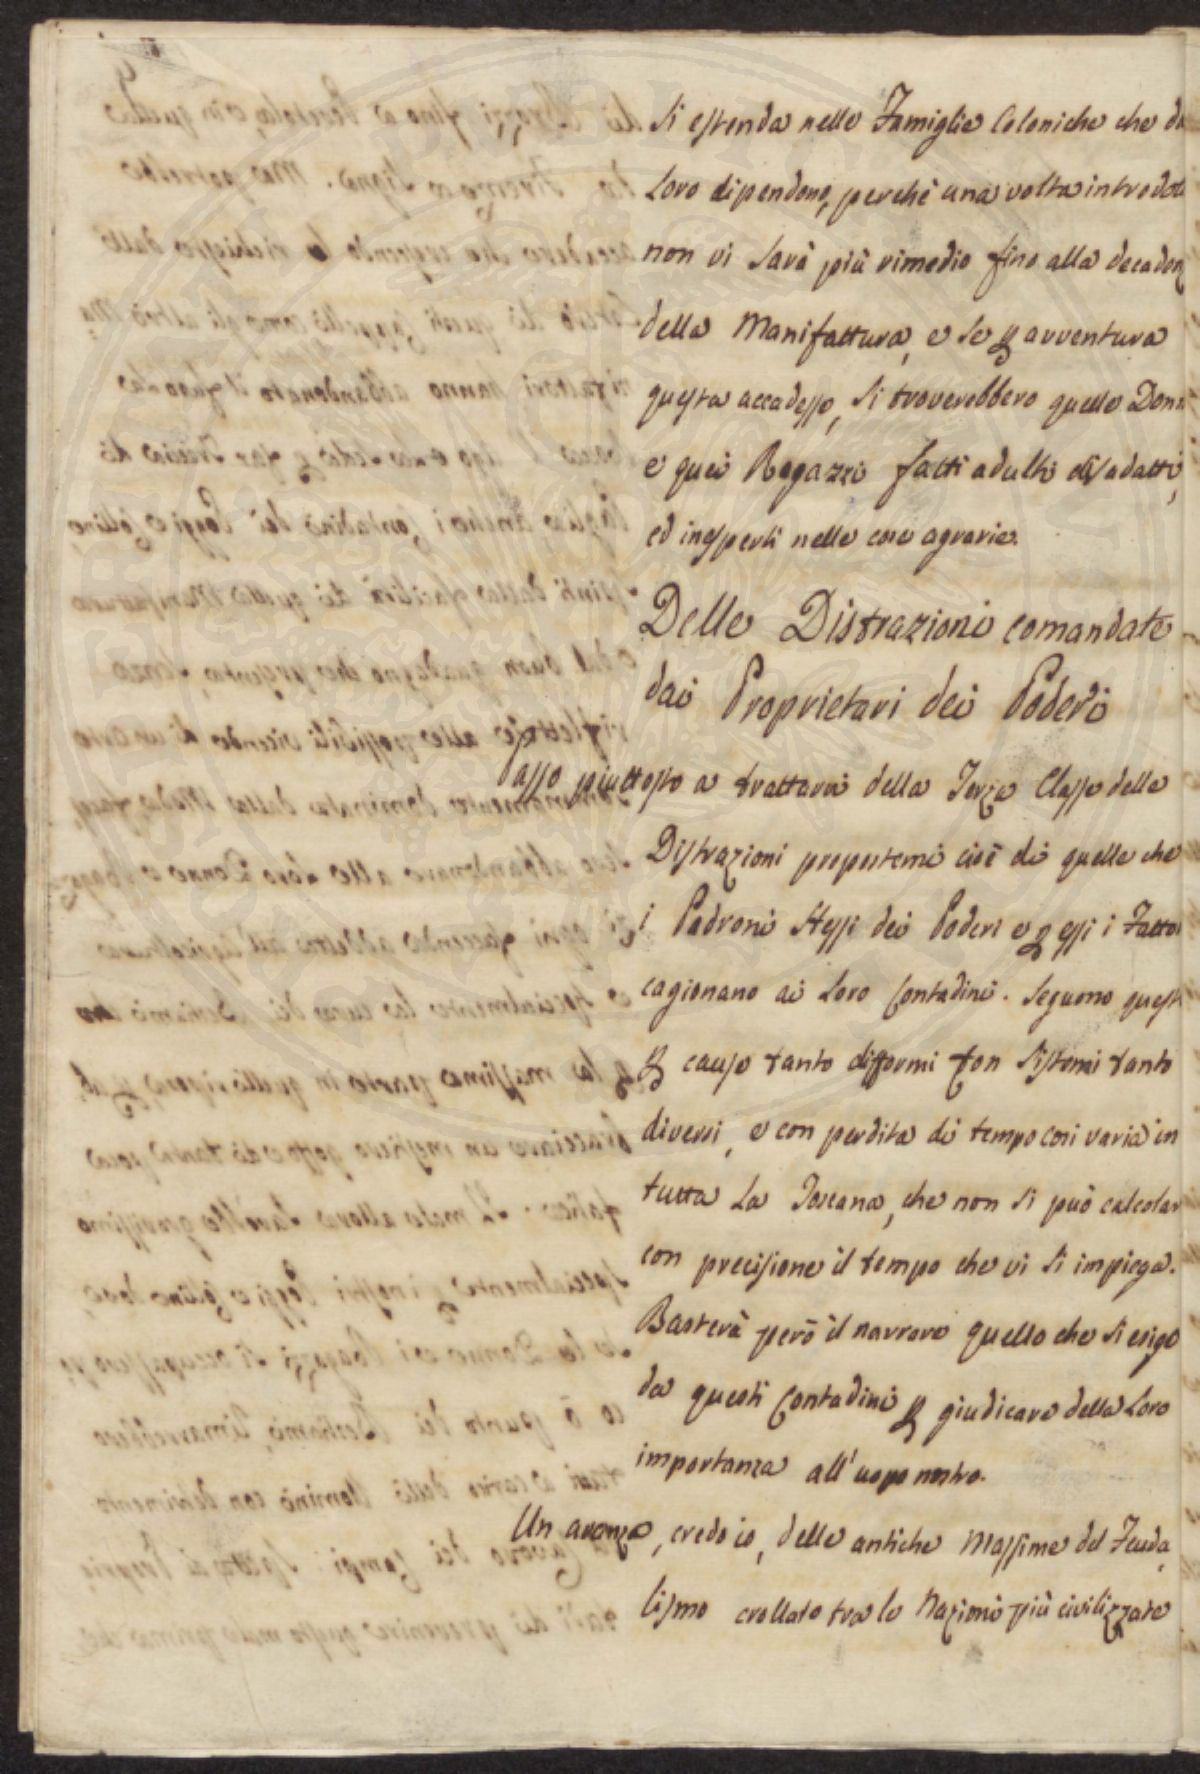 si estenda nelle Famiglie Coloniche che da
Loro dipendono, perchè una volta introdot
non vi sarà più rimedio fino alla decaden
della Manifattura, e se p avventura
questa accadesse, si troverebbero quelle Donn
e quei Ragazzi fatti adulti disadatti,
ed inesperti nelle cose agrarie.
Delle Distrazioni comandate
dai Proprietari dei Poderi
Passo piuttosto a trattarvi della Terza Classe delle
Distrazioni propostemi cioè di quelle che
i Padroni stessi dei Poderi e p essi i Fattor
cagionano ai Loro Contadini. Seguono quest
p cause tanto difformi con sistemi tanto
diversi, e con perdita di tempo così varia in
tutta La Toscana, che non si può calcolar
con precisione il tempo che vi si impiega.
Basterà però il narrare quello che si esige
da questi Contadini p giudicare della Loro
importanza all'uopo nostro.
Un avanzo, credo io, delle antiche Massime del Feuda,
lismo crollato tra le Nazioni più civilizzate